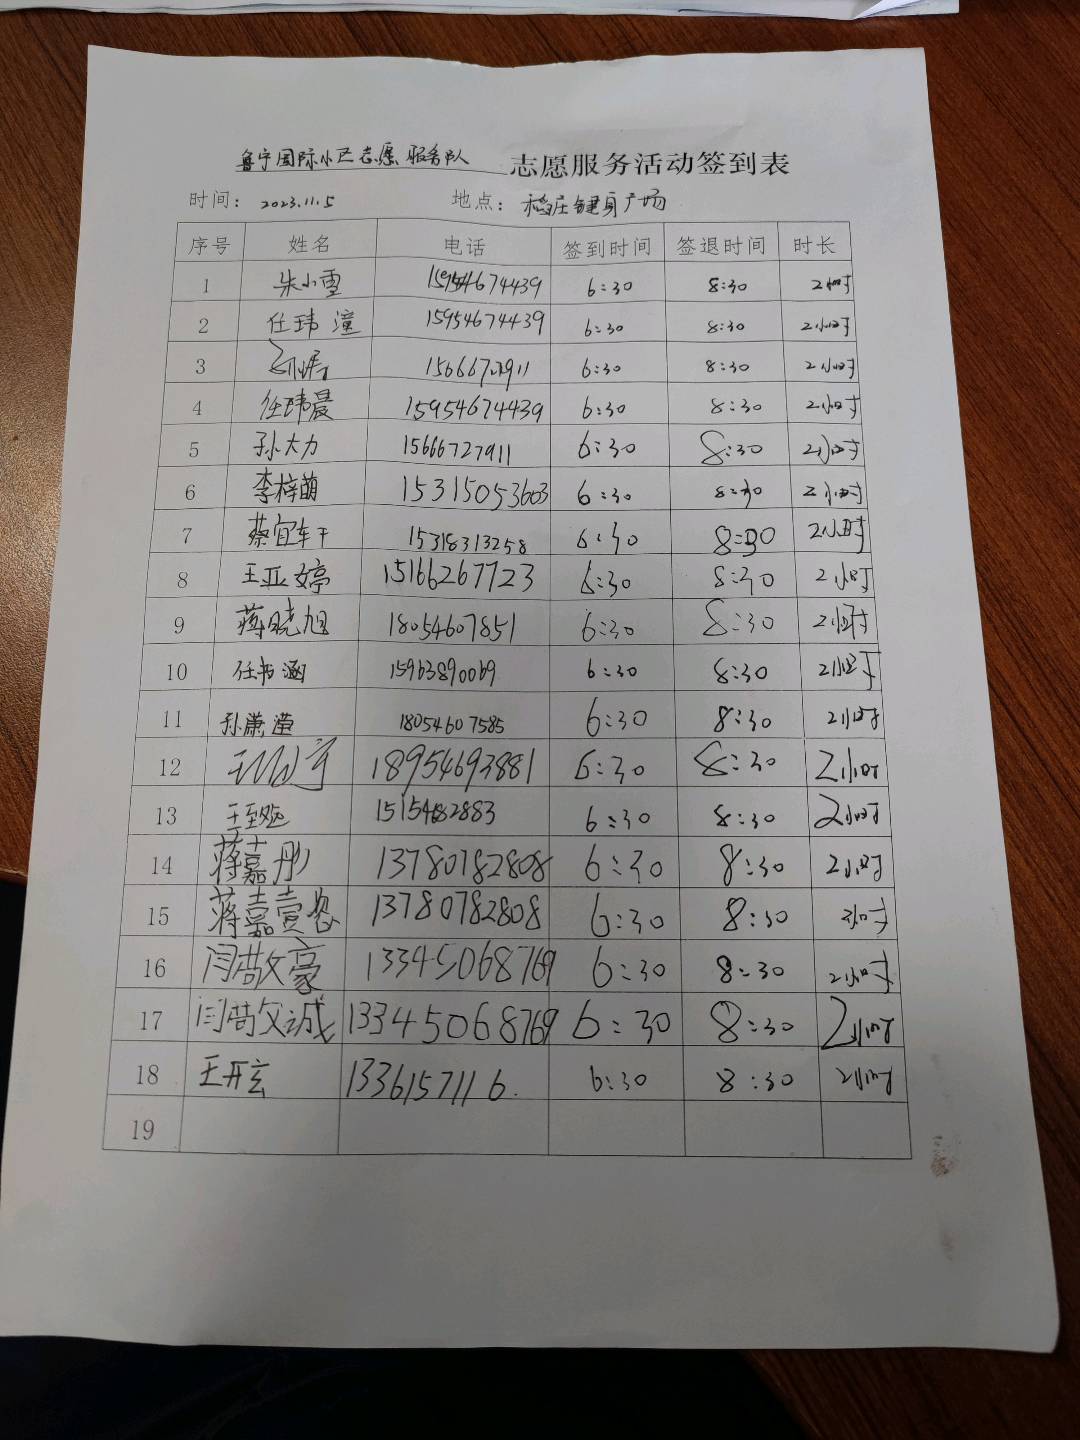 鲁宁国际小区志愿服务队 志愿服务活动签到表
时间: 2023.11.5 地点: 稻庄健身广场
序号 姓名 电话 签到时间 签退时间 时长
1 朱小雪 15954674439 6:30 8:30 2小时
2 任玮潼 15954674439 6:30 8:30 2小时
3 15666727911 6:30 8:30 2小时
4 任玮晨 15954674439 6:30 8:30 2小时
5 孙大力 15666727911 6:30 8:30 2小时
6 李梓萌 15315053603 6:30 8:30 2小时
7 蔡宜轩 15318313258 6:30 8:30 2小时
8 王亚婷 15166267723 6:30 8:30 2小时
9 蒋晓旭 18054607851 6:30 8:30 2小时
10 任书涵 15963890069 6:30 8:30 2小时
11 孙潇滢 18054607585 6:30 8:30 2小时
12 18954693881 6:30 8:30 2小时
13 6:30 8:30 2小时
14 蒋嘉彤 13780782808 6:30 8:30 2小时
15 13780782808 6:30 8:30 2小时
16 闫敬豪 13345068769 6:30 8:30 2小时
17 13345068769 6:30 8:30 2小时
18 王开玄 13361571116. 6:30 8:30 2小时
19